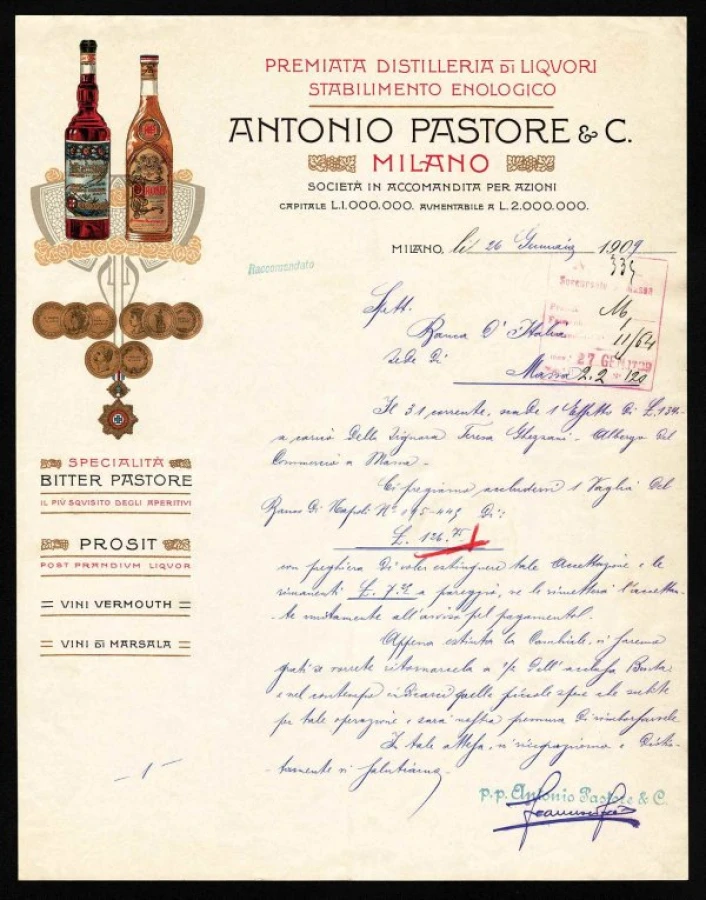 PREMIATA DISTILLERIA DI LIQVORI
STABILIMENTO ENOLOGICO
ANTONIO PASTORE & C.
MILANO
SOCIETÀ IN ACCOMANDITA PER AZIONI
CAPITALE L.1.000.000. AVMENTABILE A L.2.000.000.
MILANO, li 26 Gennaio 1909
335
Raccomandato
Spett.
Banca D'Italia
Sede di
Massa
M
11/64
27 GEN 1909
2.2 120
Il 31 corrente, scade 1 Effetto di L. 134.
a carico della Signora Teresa Ghezzani - Albergo del
Commercio a Massa -
Ci pregiamo accludervi 1 Vaglia del
Banco di Napoli N° 195-445 di:
L. 126.75
con preghiera di voler estinguere tale accettazione e le
rimanenti L. 7.25 a pareggio, ve le rimetterà l'accettan-
-te unitamente all'avviso pel pagamento.
Appena estinta la Cambiale, vi saremo
grati se vorrete ritornarcela a 1/2 dell'acclusa Busta
e nel contempo indicarci quelle piccole spese che subite
per tale operazione e sarà nostra premura di rimborsarvele
In tale attesa, vi ringraziamo e distin-
-tamente vi salutiamo.
p.p. Antonio Pastore & C.
SPECIALITÀ
BITTER PASTORE
IL PIÙ SQVISITO DEGLI APERITIVI
PROSIT
POST PRANDIVM LIQVOR
VINI VERMOUTH
VINI DI MARSALA
- 1 -